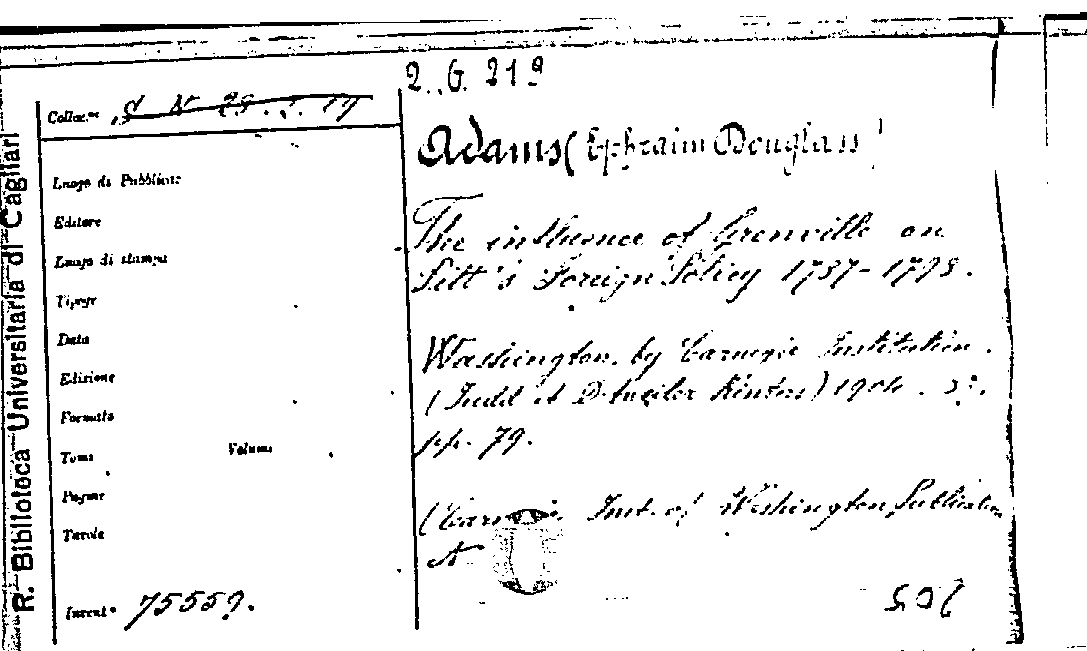 R. Biblioteca Universitaria di Cagliari
2. G. 219
Colloc.ne S N 29. 5. 19
Adams (Ephraim Douglass)
Luogo di Pubblic.ne
The influence of Grenville on
Editore
Pitt's Foreign Policy 1787-1798.
Luogo di stampa
Tipogr
Data
Washington, by Carnegie Institution.
Edizione
(Judd et Detweiler Printers) 1904. 8°.
Formato
pp. 79.
Tomi Volumi
Pagine
(Carnegie Inst. of Washington Publication
Tavole
N
Invent° 75559.
502